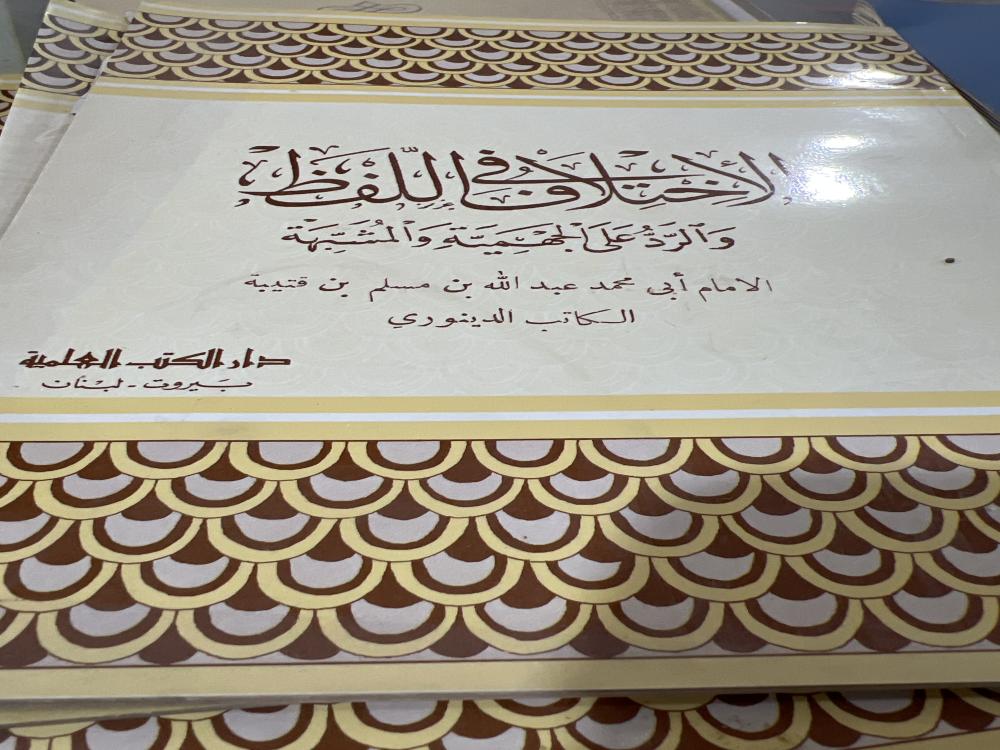 الاختلاف في اللفظ
والرد على الجهمية والمشبهة
الامام أبي محمد عبد الله بن مسلم بن قتيبة
الكاتب الدينوري
دار الكتب العلمية
بيروت - لبنان